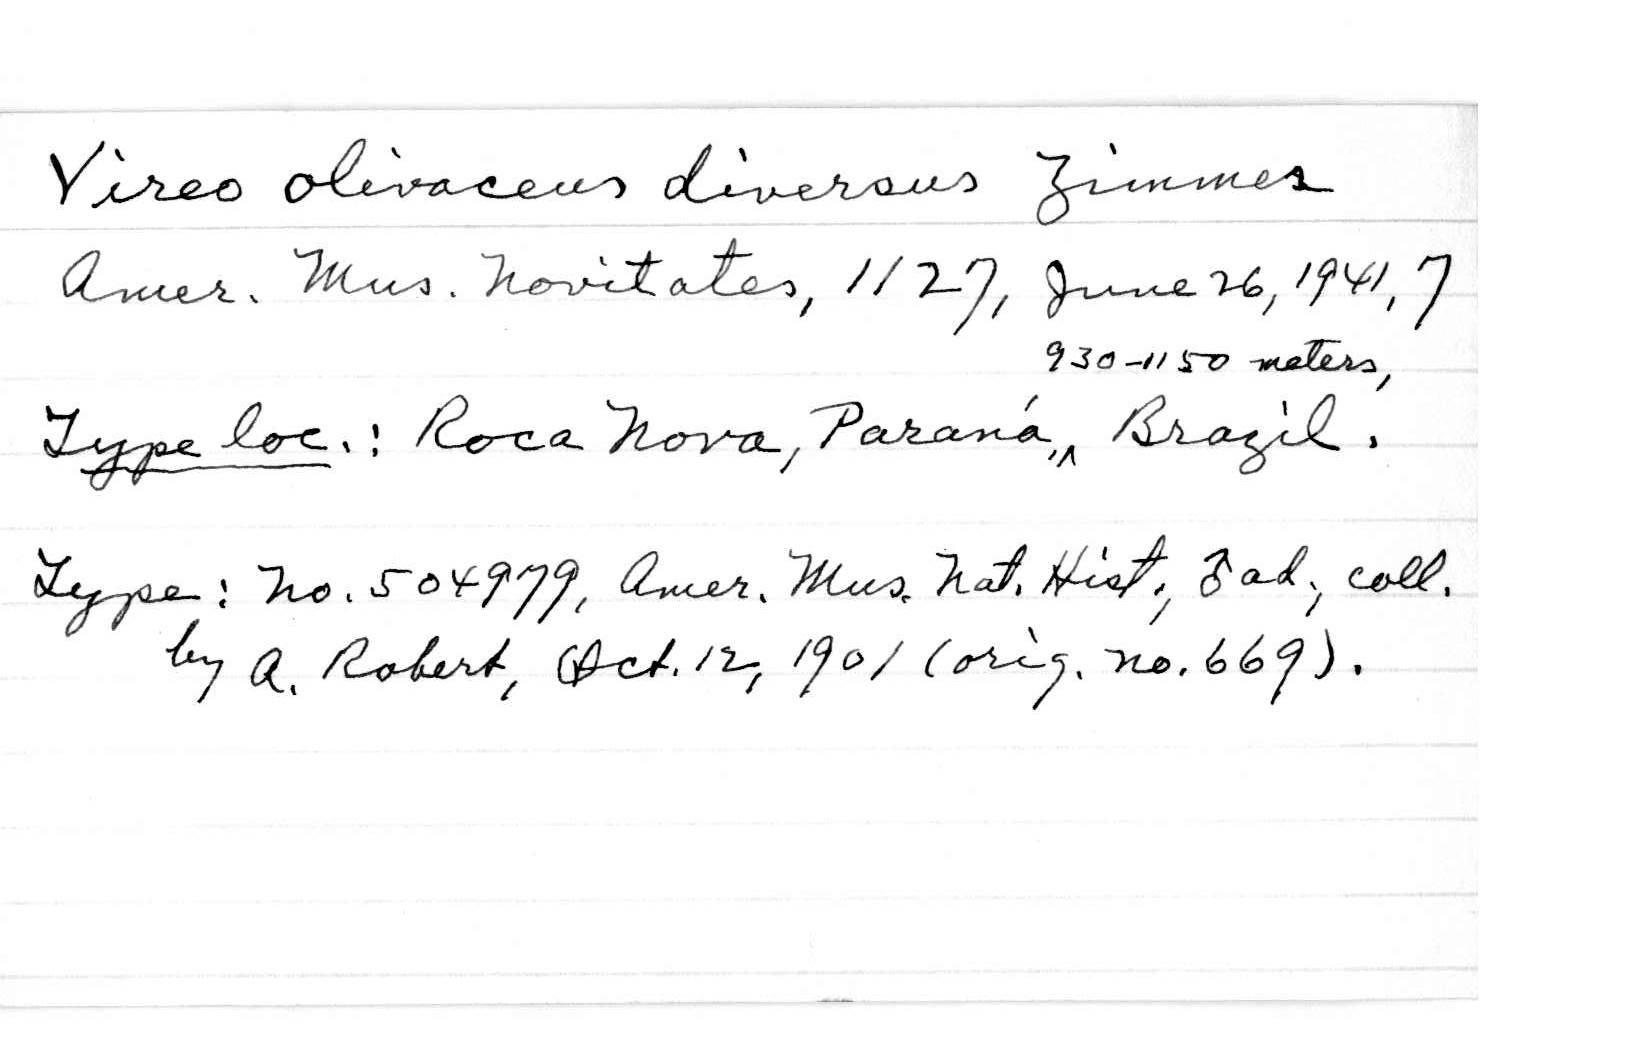 Vireo olivaceus diversus Zimmer
Amer. Mus. Novitates, 1127, June 26, 1941, 7
930-1150 meters,
Type loc.: Roca Nova, Paraná, Brazil.
Type: No. 504979, Amer. Mus. Nat. Hist., ♂ ad., coll.
by A. Robert, Oct. 12, 1901 (orig. no. 669).